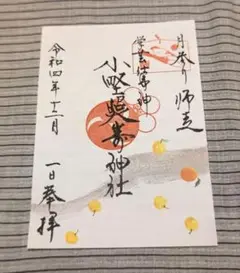 月参り 師走
小野照崎神社
令和四年十二月
一日奉拝